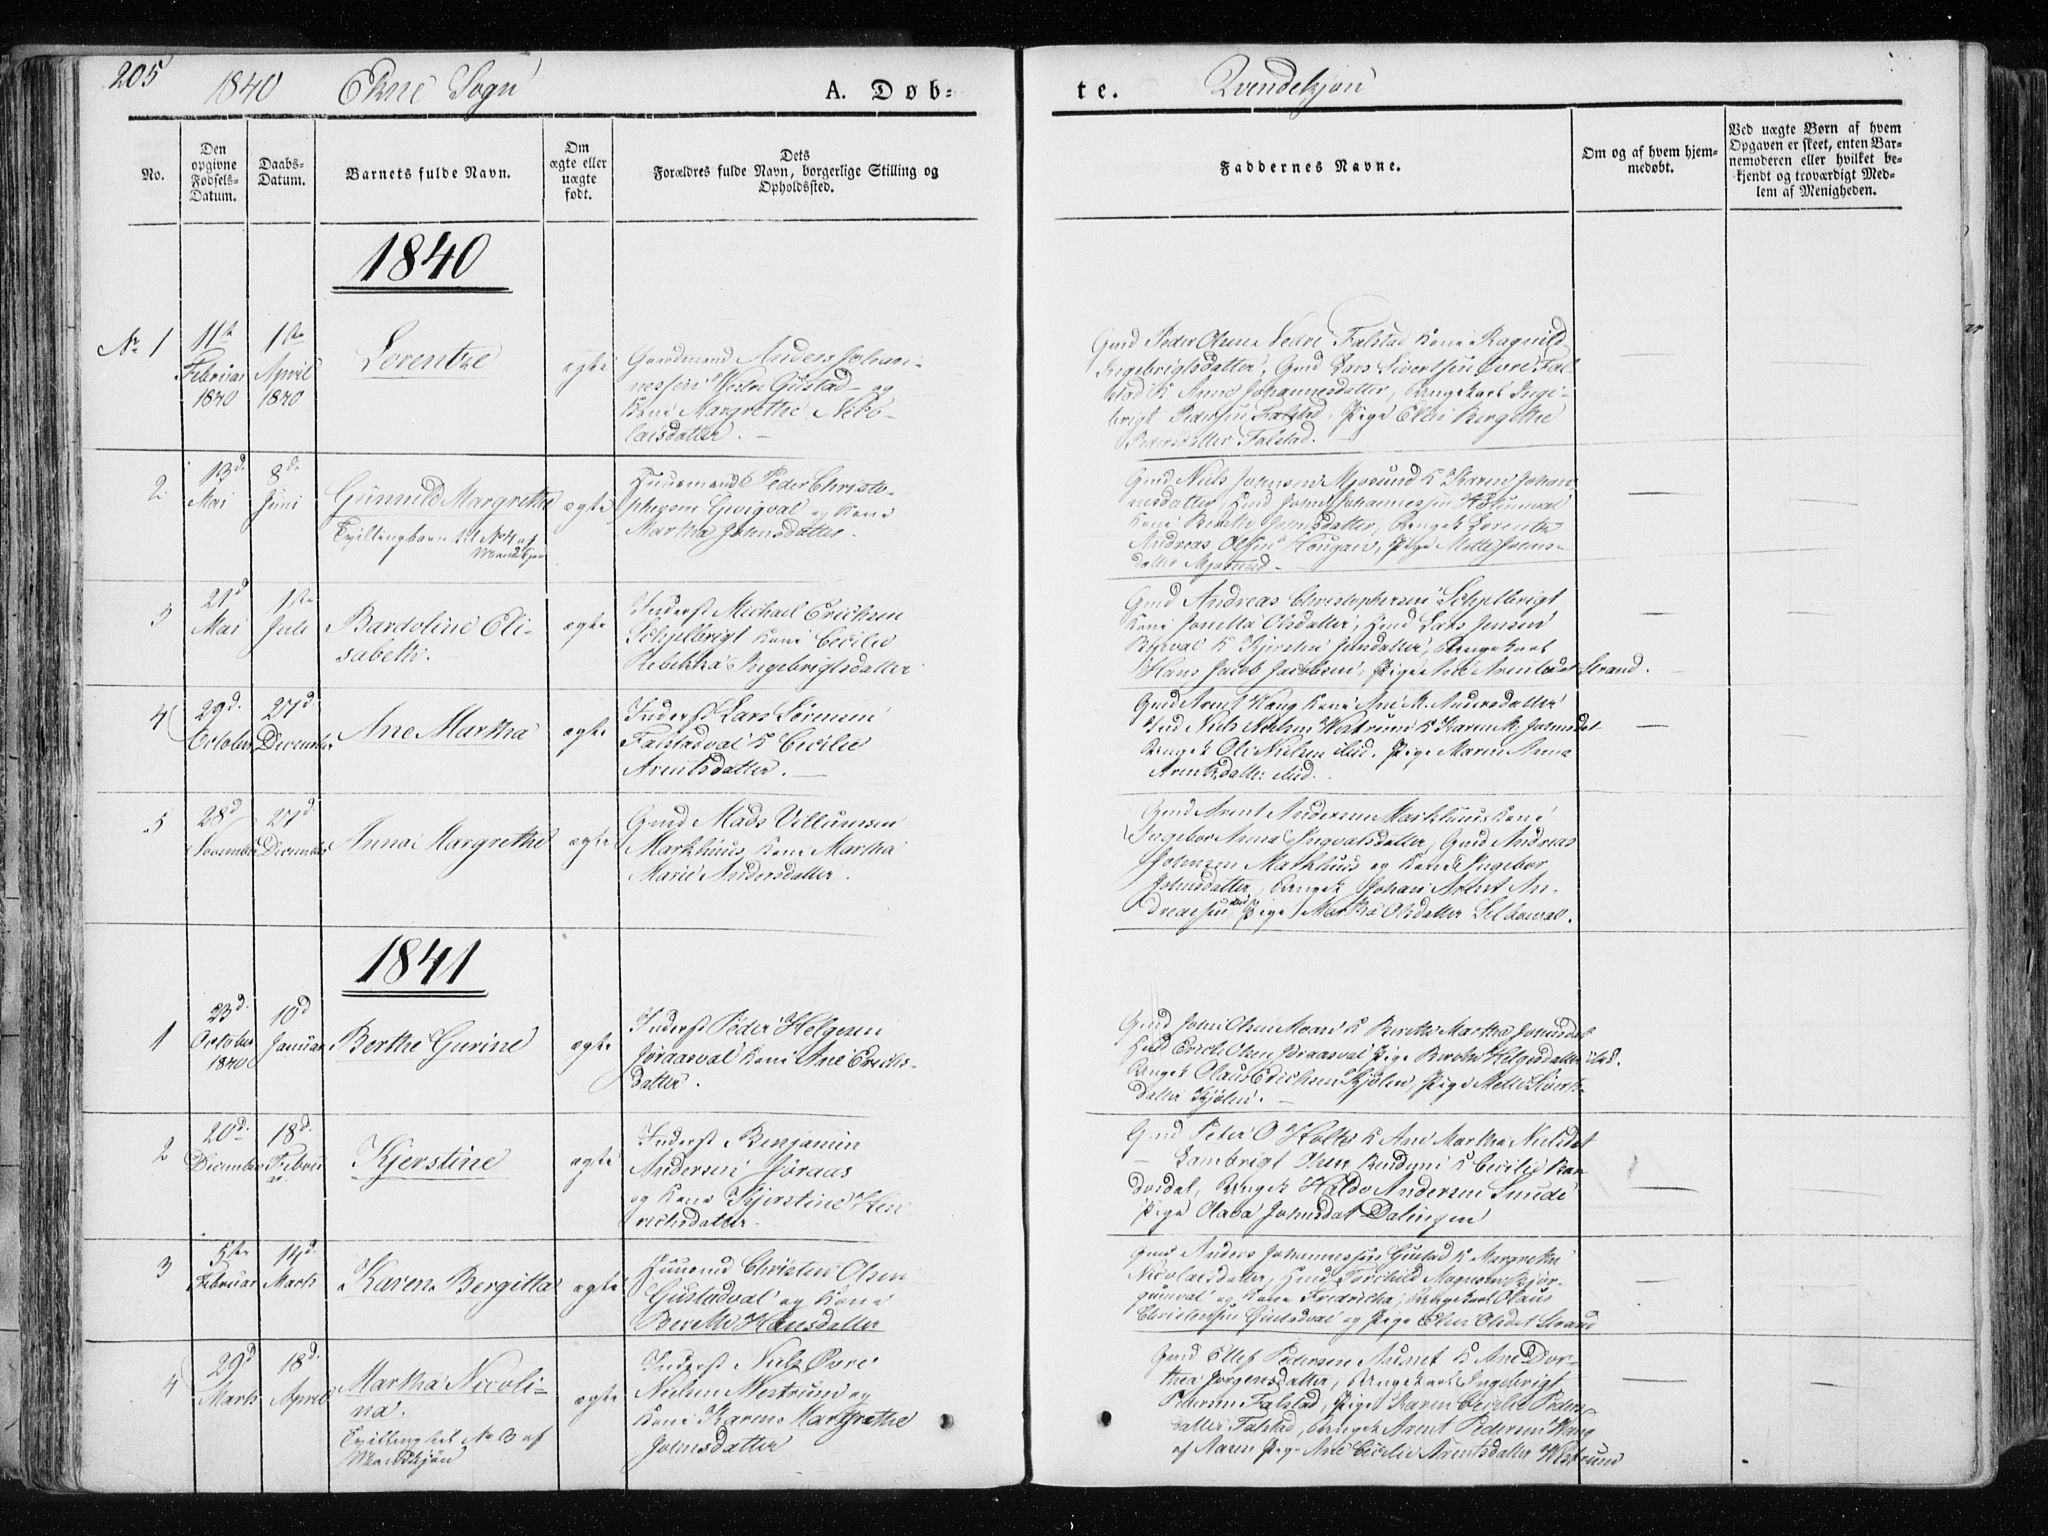 205
1840 Ekne Sogn A. Døb-
te. Qvendekjøn
No.
Den opgivne Fødsels-Datum.
Daabs-Datum.
Barnets fulde Navn.
Om ægte eller uægte født.
Dets Forældres fulde Navn, borgerlige Stilling og Opholdssted.
Faddernes Navne.
Om og af hvem hjem-
medøbt.
Ved uægte Børn af hvem
Opgaven er skeet, enten Bar-
nemoderen eller hvilket be-
kjendt og troværdigt Med-
lem af Menigheden.
1840
No 1
11te Februar 1840
1ste April 1840
Lorentze
ægte
Gaardmand Anders Johan-
nessen Westre Gustad og
Kone Margrethe Nico-
laisdatter.
Gmd Peder Olsen Nedre Falstad Kone Ragnild
Ingebrigtsdatter, Gmd Lars Sivertsen Øvre Fal-
stad K Anne Johannesdatter, Ungekarl Inge-
brigt Pedersen Falstad, Pige Elen Bergithe
Pedersdatter Falstad.
2
13d Mai
8de Juni
Gunnild Margrethe
Tvillingbarn til No 4 af
Mandkjøn
ægte
Huusmand Peder Christo-
phersen og Kone
Martha Johnsdatter.
Gmd Niels K Karen Johan-
nesdatter, Hmd John Johannessen
Kone Berethe Johnsdatter, Ungk Lorents
Andreas Olsen Hougan, Pige Mette
datter
3
21d Mai
1ste Juli
Bardoline Eli-
sabeth.
ægte
Inderst Michael Ericksen
Schjelbrigt Kone Cecilie
Rebekka Ingebrigtsdatter
Gmd Andreas Christophersen Schjelbrigt
Kone Jonetta Olsdatter, Hmd Lars Jensen
K Kjerstine datter, Ungekarl
Hans Jacob Jacobsen, Pige Strand.
4
29d October
27d December
Ane Martha
ægte
Inderst Lars Sørensen
Falstadval K Cecilie
Arentsdatter.
Gmd Arent Haug Kone Ane M. Andersdatter
Ind Niels Nielsen Westrum K Karen M. Johnsdat
Ungek Ole Nielsen ibid. Pige Maren Anna
Arentsdatter ibid.
5
28d November
27d December
Anna Margrethe
ægte
Gmd Mads Villumsen
Markhuus Kone Martha
Marie Andersdatter.
Gmd Arent Andersen Markhuus Kone
Ingebor Anna Ingvalsdatter, Gmd Andreas
Johnsen Markhuus og Kone Ingebor
Johnsdatter, Ungek Johan Arent An-
dreasen ibid Pige Martha Olsdatter
1841
1
23d October 1840
10d Januar
Berthe Gurine
ægte
Inderst Peder Helgesen
Joraasval Kone Ane Erichs-
datter.
Gmd John Olsen Moan K Berethe Martha Johnsdat
Hmd Erich Olsen Joraasval Pige Berthe Helgesdatter ibid.
Ungek Olaus Erichsen Kjølen, Pige Mette Siverts-
datter Kjølen.
2
20d December
18d Februar
Kjerstine
ægte
Inderst Benjamin
Andersen Joraas
og Kone Kjerstine Hen-
richsdatter.
Gmd Peter O Holte K Ane Martha Nielsdat
Lambrigt Olsen K Cecilie
Ungek Andersen
Pige Olava Johnsdat Dalingen
3
5te Februar
14d Marts
Karen Bergitta
ægte
Huusmd Christen Olsen
Gustadval og Kone
Berethe Hansdatter
Gmd Anders Johannessen Gustad K Margrethe
Nicolaisdatter, Hmd Torchild Magnesen
og Kone Fredricha, Ungekarl Olaus
Christensen Gustadval og Pige Elen Olsdat Strand
4
29d Marts
18d April
Martha Nicoli-
na.
Tvilling til No 3 af
Mandkjøn
ægte
Inderst Niels Øvre
Nielsen Westrum og
Kone Karen Margrethe
Johnsdatter
Gmd Ellef Pedersen Ausnet K Ane Dor-
thea Jørgensdatter, Ungekarl Ingebrigt
Pedersen Falstad, Pige Karen Cecilie Peders-
datter Falstad, Ungek Arent Pedersen Haug
Pige Ane Cecilie Arentsdatter Westrum